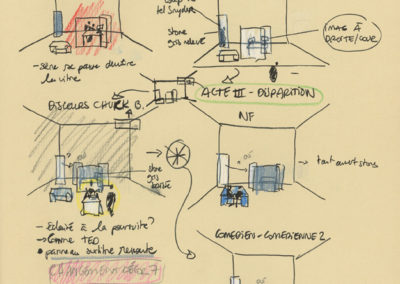 tel Snyder
store
gris relevé
IMAG À
DROITE/COUR
- Scène se passe derrière
la vitre
ACTE III - DISPARITION
DISCOURS CHUCK B.
NF
store
gris
baissé
tout ouvert stores
- Éclairé à la poursuite?
→ Comme TED
• panneau surtitre remonte
COMÉDIEN - COMÉDIENNE 2
CHANGEMENT DÉCOR ?